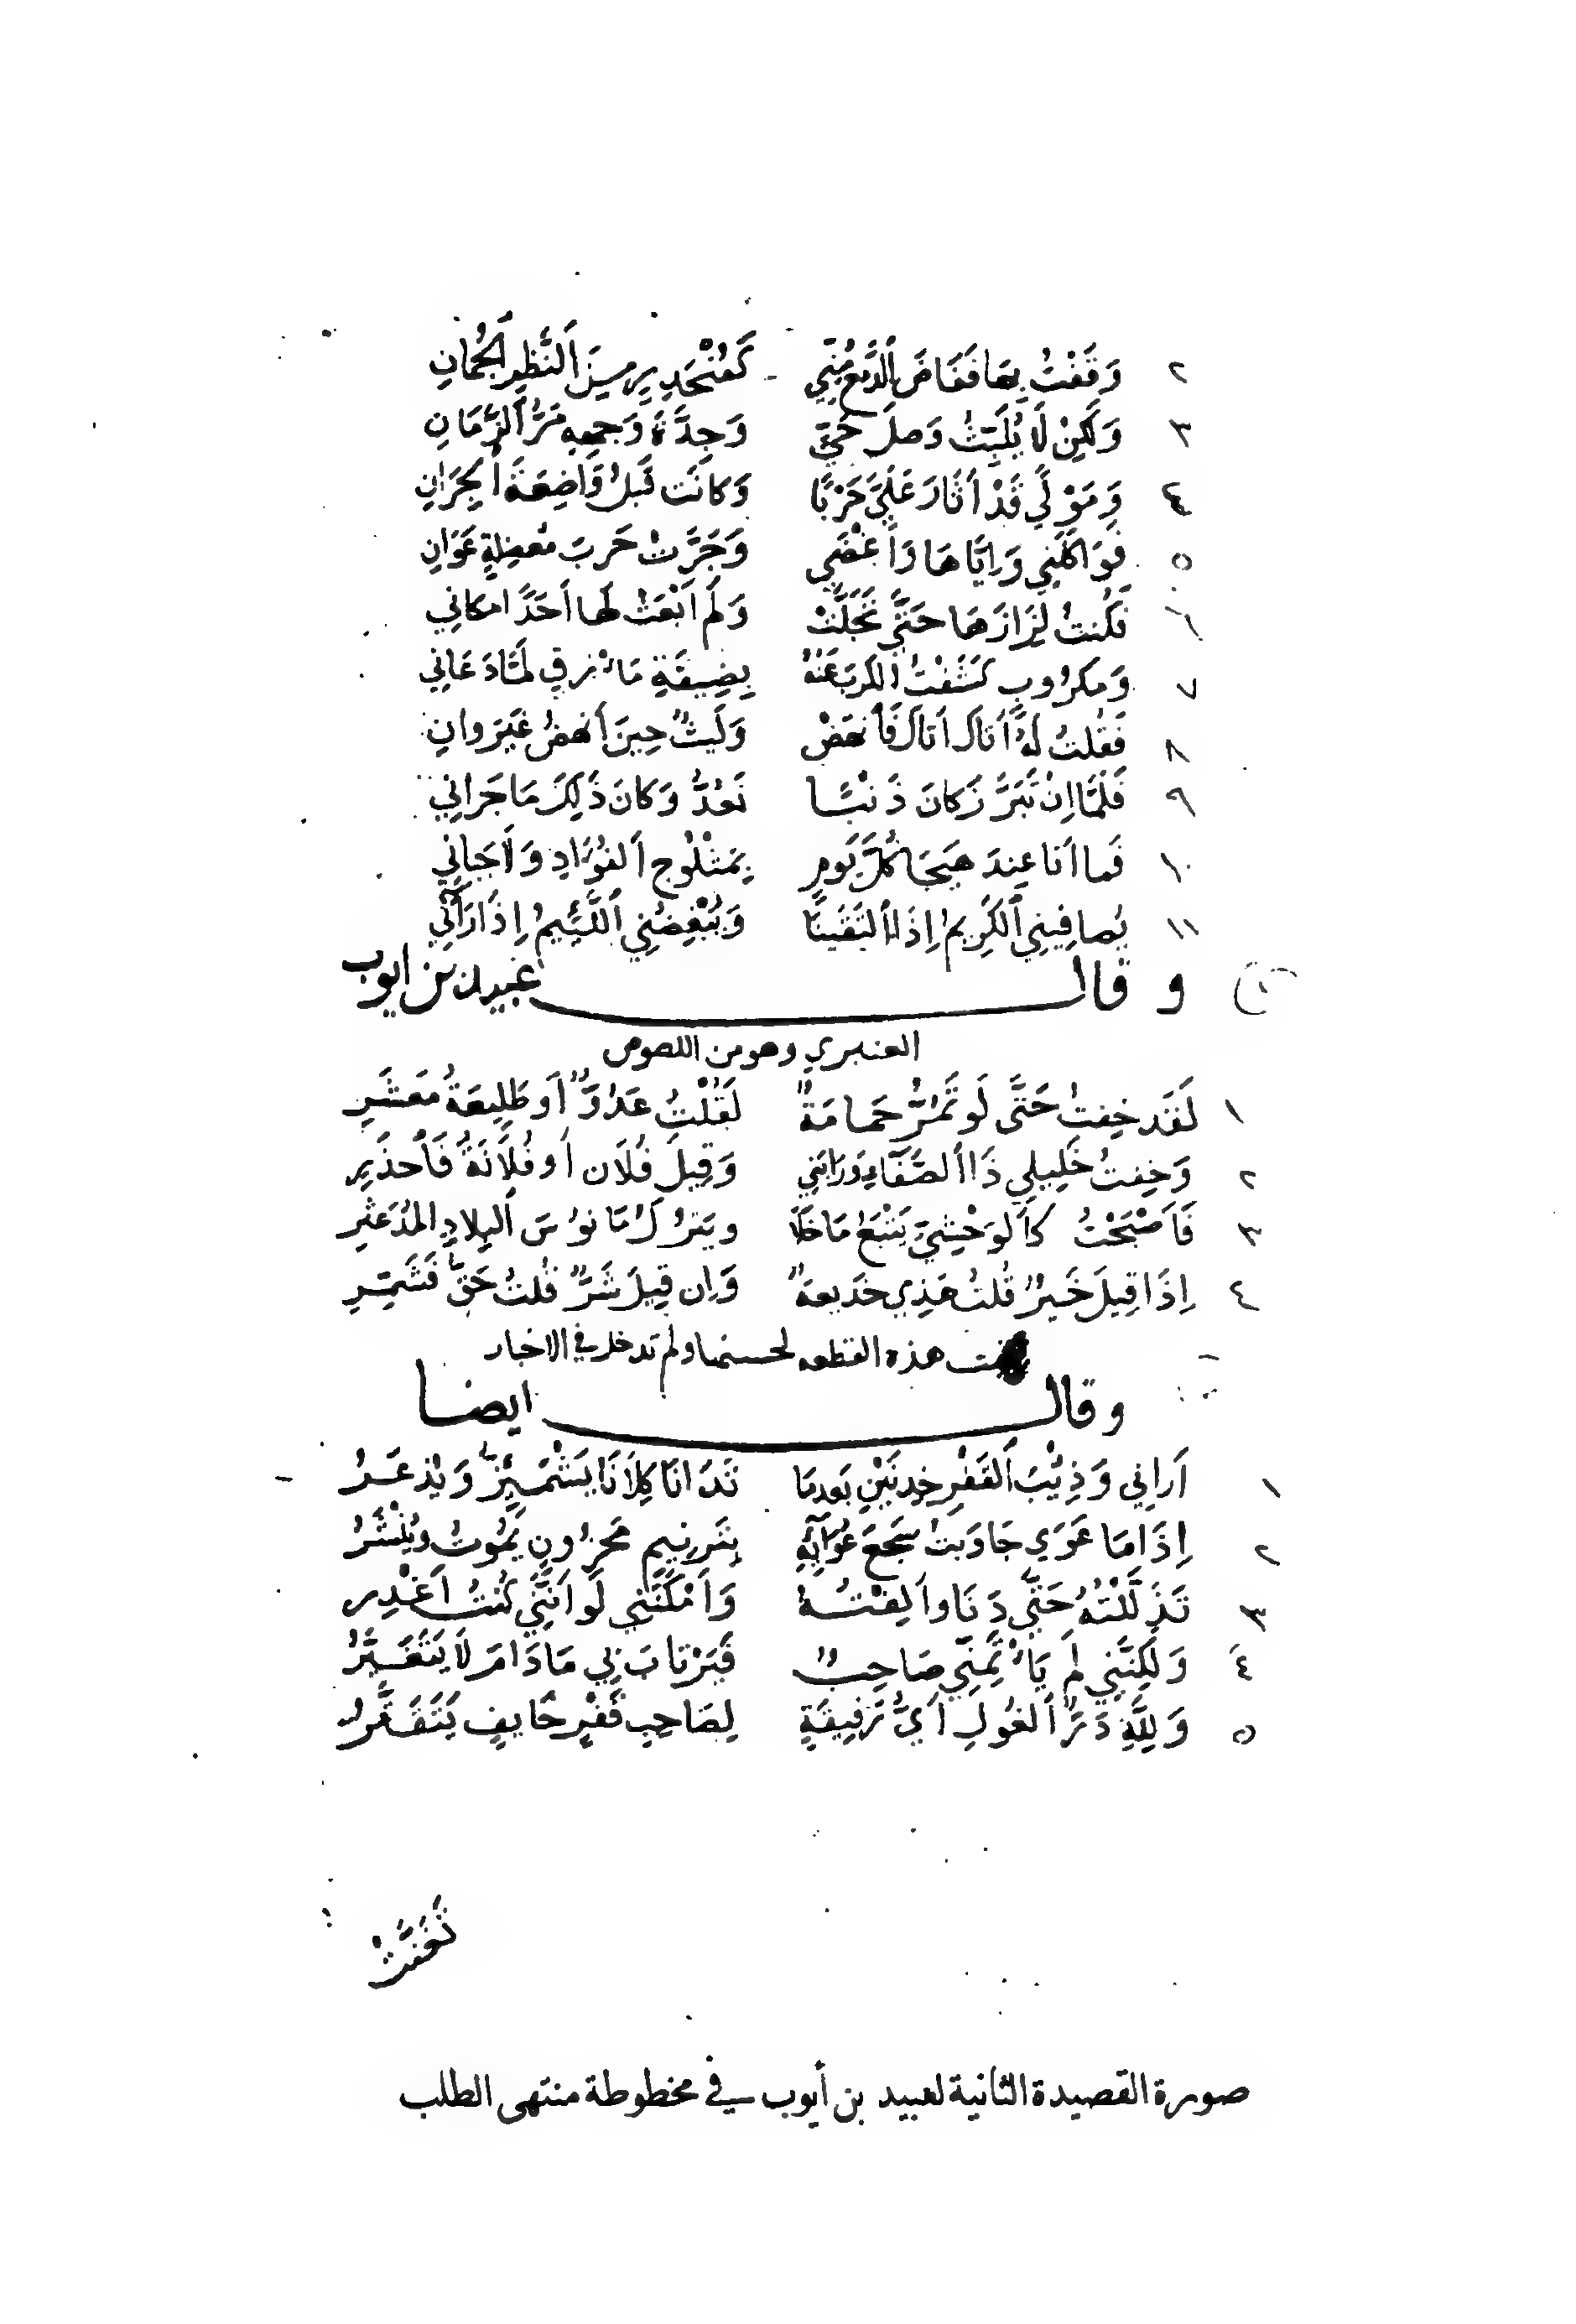 ٢ وَقَفْتُ بِهَا فَفَاضَ اَلدَّمْعُ مِنِّي كَمُنْحَدِرٍ مِنَ اَلنَّظْمِ اَلْجُمَانِ
٣ وَلَكِنْ لَا يُلَبِّثُ وَصلَ حَيٍّ وَجِدَّةَ وَجهِهِ مَرُّ اَلزَّمَانِ
٤ وَمَوْلًي قَدْ اَثَارَ عَلَيَّ حَرْبًا وَكَانَت قَبلُ وَاضِعَةَ اَلجِرَانِ
٥ فَوَاكَلَنِي وَاِيَّاهَا وَاَغْضَي وَجَرَّتْ حَربَ مُعضِلَةٍ عَوَانِ
٦ فَكُنتُ لِزَازَهَا حَتَّي تَجَلَّتْ وَلَم اَبْعَثْ لَها اَحَدًا مكاني
٧ وَمَكرُوبٍ كَشَفْتُ الكَربَ عَنْهُ بِضِيقَةِ مَاْزِقٍ لَمَّا دَعَانِي
٨ فَقُلتُ لَهُ اَتَاكَ اَتَاكَ فَاَنهَضْ وَلَيثٌ حِينَ اَنهَضُ غَيرَ وانِ
٩ فَلَمَّا اِنْ تَبَرَّزَ كَانَ ذَنْبًا نَعُدُّ وَكَانَ ذَلِكَ مَا جَرانِي
١٠ فَما اَنا عِندَ هَيجَا كُلَّ يَومٍ بِمَثْلُوجِ اَلفُؤَادِ وَلَا جَبَانِي
١١ يُصافِينِي اَلكَرِيمُ اِذَا اَلتَقَينَا وَيُبْغِضُنِي اَللَّئِيمُ اِذَا رَآَنِي
و قال عبيد بن ايوب
العنبري وهو من اللصوص
١ لَقَد خِفتُ حَتَّى لَو تَمُرُّ حَمامَةٌ لَقُلْتُ عَدُوٌّ اَو طَلِيعَةُ مَعشَرِ
٢ وَخِفتُ خَلِيلِي ذَا اَلصَّفَاءِ وَرَابَنِي وَقِيلَ فُلَان اَو فُلَانَةُ فَاَحذَرِ
٣ فَاَصْبَحْتُ كَاَلوَحْشِيِّ يَتْبَعُ مَا خَلَا ويَترُكُ مَانوُسَ اَلبِلَادِ المُدَعثَرِ
٤ اِذَا قِيلَ خَيرٌ قُلتُ هَذِي خَدِيعَةٌ وَاِن قِيلَ شَرٌّ قُلتُ حَقٌّ فَشَمِّرِ
هذه القطعه لحسنها ولم تدخل في الاخبار
وقال ايضا
١ اَرانِي وَذِئْبَ اَلقَفْرِ خِدنَيْنِ بَعدمَا تَدَانَا كِلَانَا يَشْمَئِزُّ وَيُذعَرُ
٢ اِذَا مَا عَوَي جَاوَبتُ سَجعَ عُوَآئِهِ بِتَرنِيمِ مَحزُونٍ يَمُوتُ ويُنْشَرُ
٣ تَذَلَّلْتُهُ حَتَّي دَنَا واَلِفتُهُ وَاَمْكَنَنِي لَو اَنَّنِي كُنتُ اَغْدِر
٤ وَلَكِنَّنِي لَم يَاْتَمِنِّي صَاحِبٌ فَيَرْتَابَ بِي مَا دَامَ لَا يَتَغَيَّرُ
٥ وَلِلَّهِ دَرُّ اَلغُولِ اَيُّ رَفِيقَةٍ لِصَاحِبِ قَفْرٍ خَايِفٍ يَتَقَفَّرُ
تَغَنَّتْ
صورة القصيدة الثانية لعبيد بن أيوب في مخطوطة منتهى الطلب